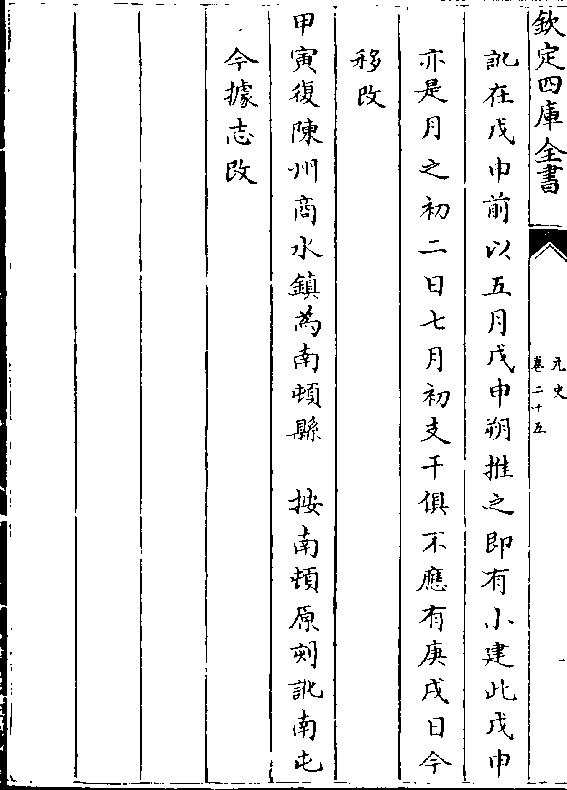 欽定四庫全書
元史
卷二十五
訛在戊申前以五月戊申朔推之即有小建此戊申
亦是月之初二日七月初支干俱不應有庚戌日今
移改
甲寅復陳州商水鎮為南頓縣　按南頓原刻訛南屯
今據志改